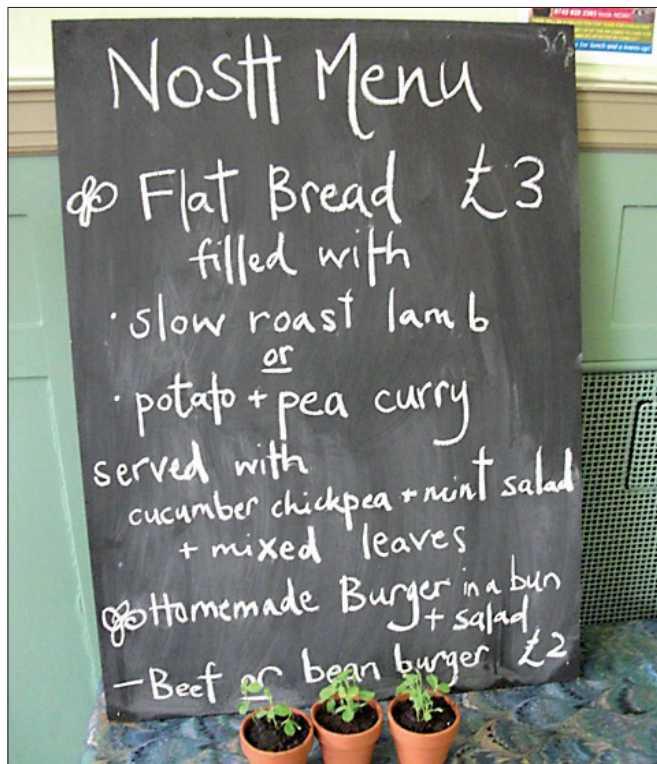 0743 028 2385
for lunch and a knees up!
Nosh Menu
Flat Bread £3
filled with
· slow roast lamb
or
· potato + pea curry
served with
cucumber chickpea + mint salad
+ mixed leaves
Homemade Burger in a bun
+ salad
- Beef or bean burger £2